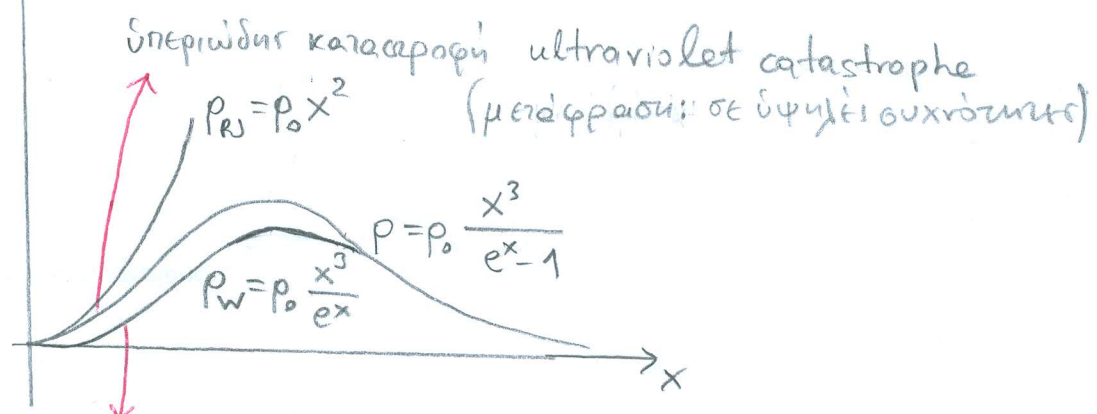 ὑπεριώδης καταστροφή ultraviolet catastrophe
ρ_RJ = ρ₀ x² (μετάφραση: σε ὑψηλές συχνότητες)
ρ = ρ₀ x³ / (eˣ - 1)
ρ_W = ρ₀ x³ / eˣ
x